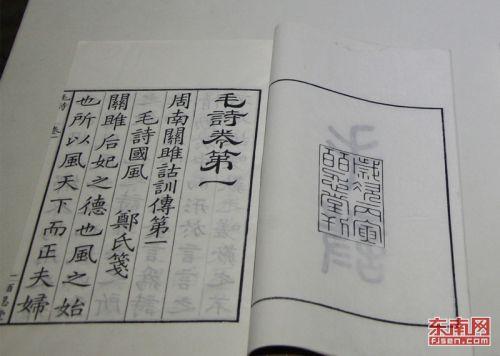 毛詩卷第一
周南關雎詁訓傳第一
毛詩國風 鄭氏箋
關雎后妃之德也風之始
也所以風天下而正夫婦
毛詩 卷一
东南网
FJSEN.COM